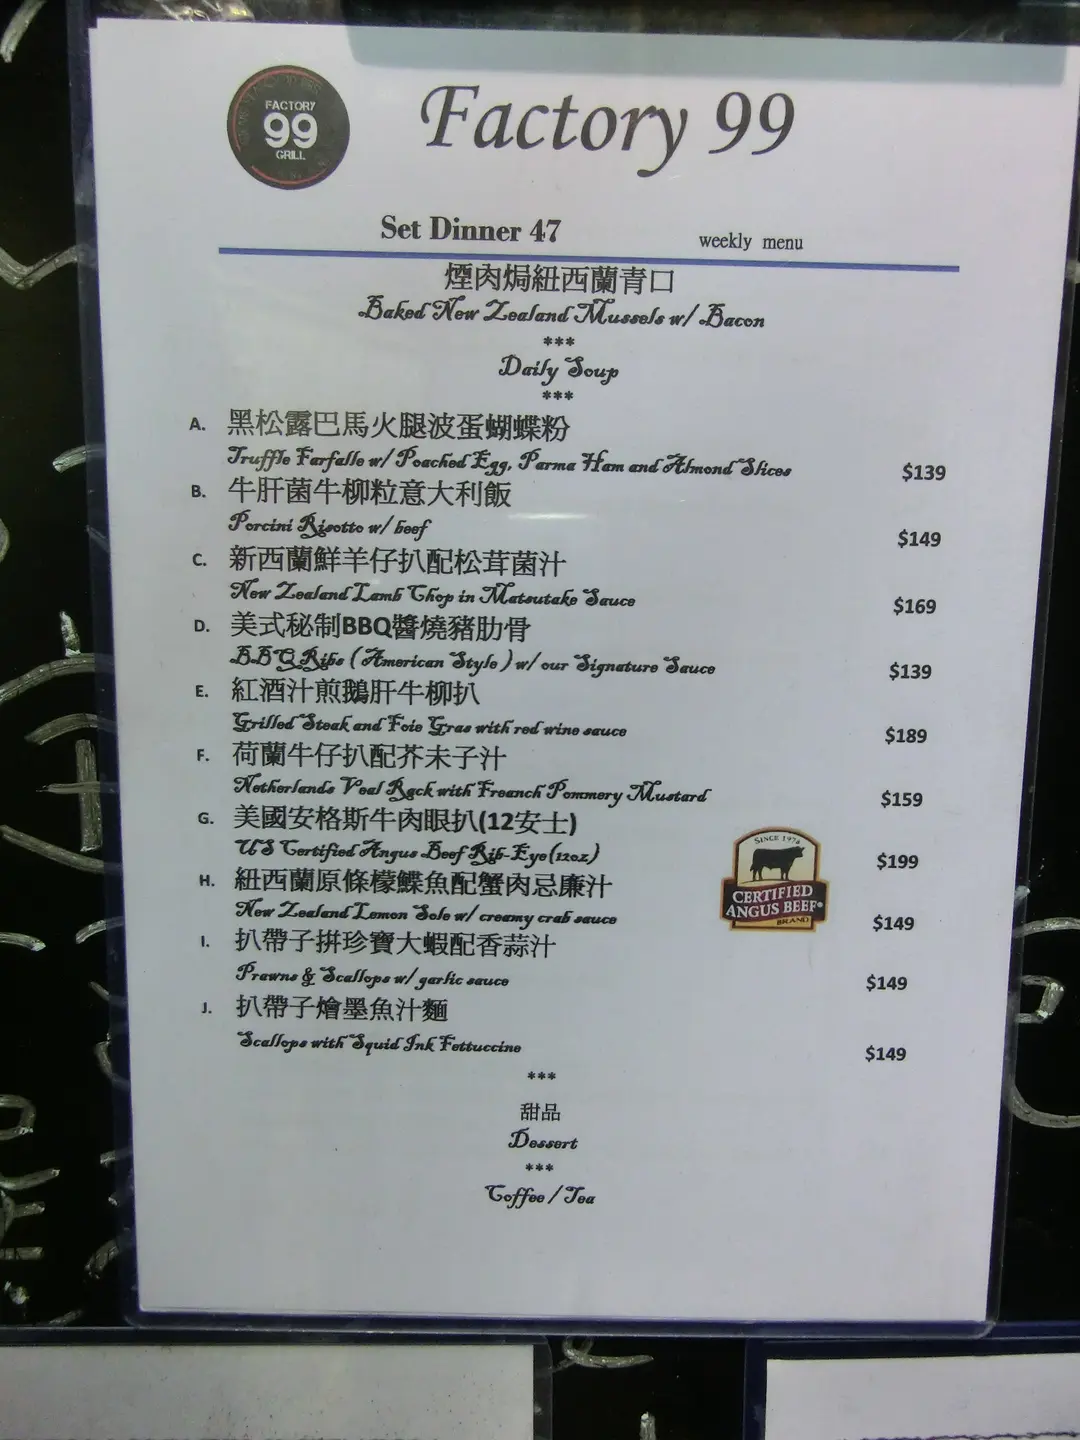 FACTORY
99
GRILL
Factory 99
Set Dinner 47 weekly menu
煙肉焗紐西蘭青口
Baked New Zealand Mussels w/ Bacon
***
Daily Soup
***
A. 黑松露巴馬火腿波蛋蝴蝶粉
Truffle Farfalle w/ Poached Egg, Parma Ham and Almond Slices $139
B. 牛肝菌牛柳粒意大利飯
Porcini Risotto w/ beef $149
C. 新西蘭鮮羊仔扒配松茸菌汁
New Zealand Lamb Chop in Matsutake Sauce $169
D. 美式秘制BBQ醬燒豬肋骨
BBQ Ribs (American Style) w/ our Signature Sauce $139
E. 紅酒汁煎鵝肝牛柳扒
Grilled Steak and Foie Gras with red wine sauce $189
F. 荷蘭牛仔扒配芥未子汁
Netherlands Veal Rack with Freanch Pommery Mustard $159
G. 美國安格斯牛肉眼扒(12安士)
US Certified Angus Beef Rib-Eye(12oz) $199
SINCE 1978
CERTIFIED
ANGUS BEEF
BRAND
H. 紐西蘭原條檬鰈魚配蟹肉忌廉汁
New Zealand Lemon Sole w/ creamy crab sauce $149
I. 扒帶子拼珍寶大蝦配香蒜汁
Prawns & Scallops w/ garlic sauce $149
J. 扒帶子燴墨魚汁麵
Scallops with Squid Ink Fettuccine $149
***
甜品
Dessert
***
Coffee / Tea